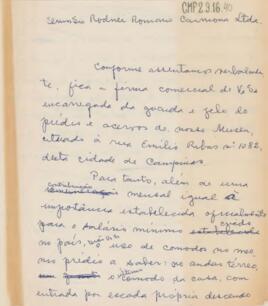 CMP2.9.16.40
Rodner Romano Carmona Ltda.
Conforme assentamos verbalmen
te, fica a firma comercial de V. Sa
encarregada da guarda e zelo do
prédio e acervos do nosso Museu,
situado à rua Emilio Ribas nº 1082,
desta cidade de Campinas.
Para tanto, além de uma
contribuição
mensal igual a
importância estabelecida oficialmente
para o salário mínimo
no país, o uso de comodos no mes
mo prédio a saber: no andar térreo,
o comodo da casa, com
entrada por escada própria descendo